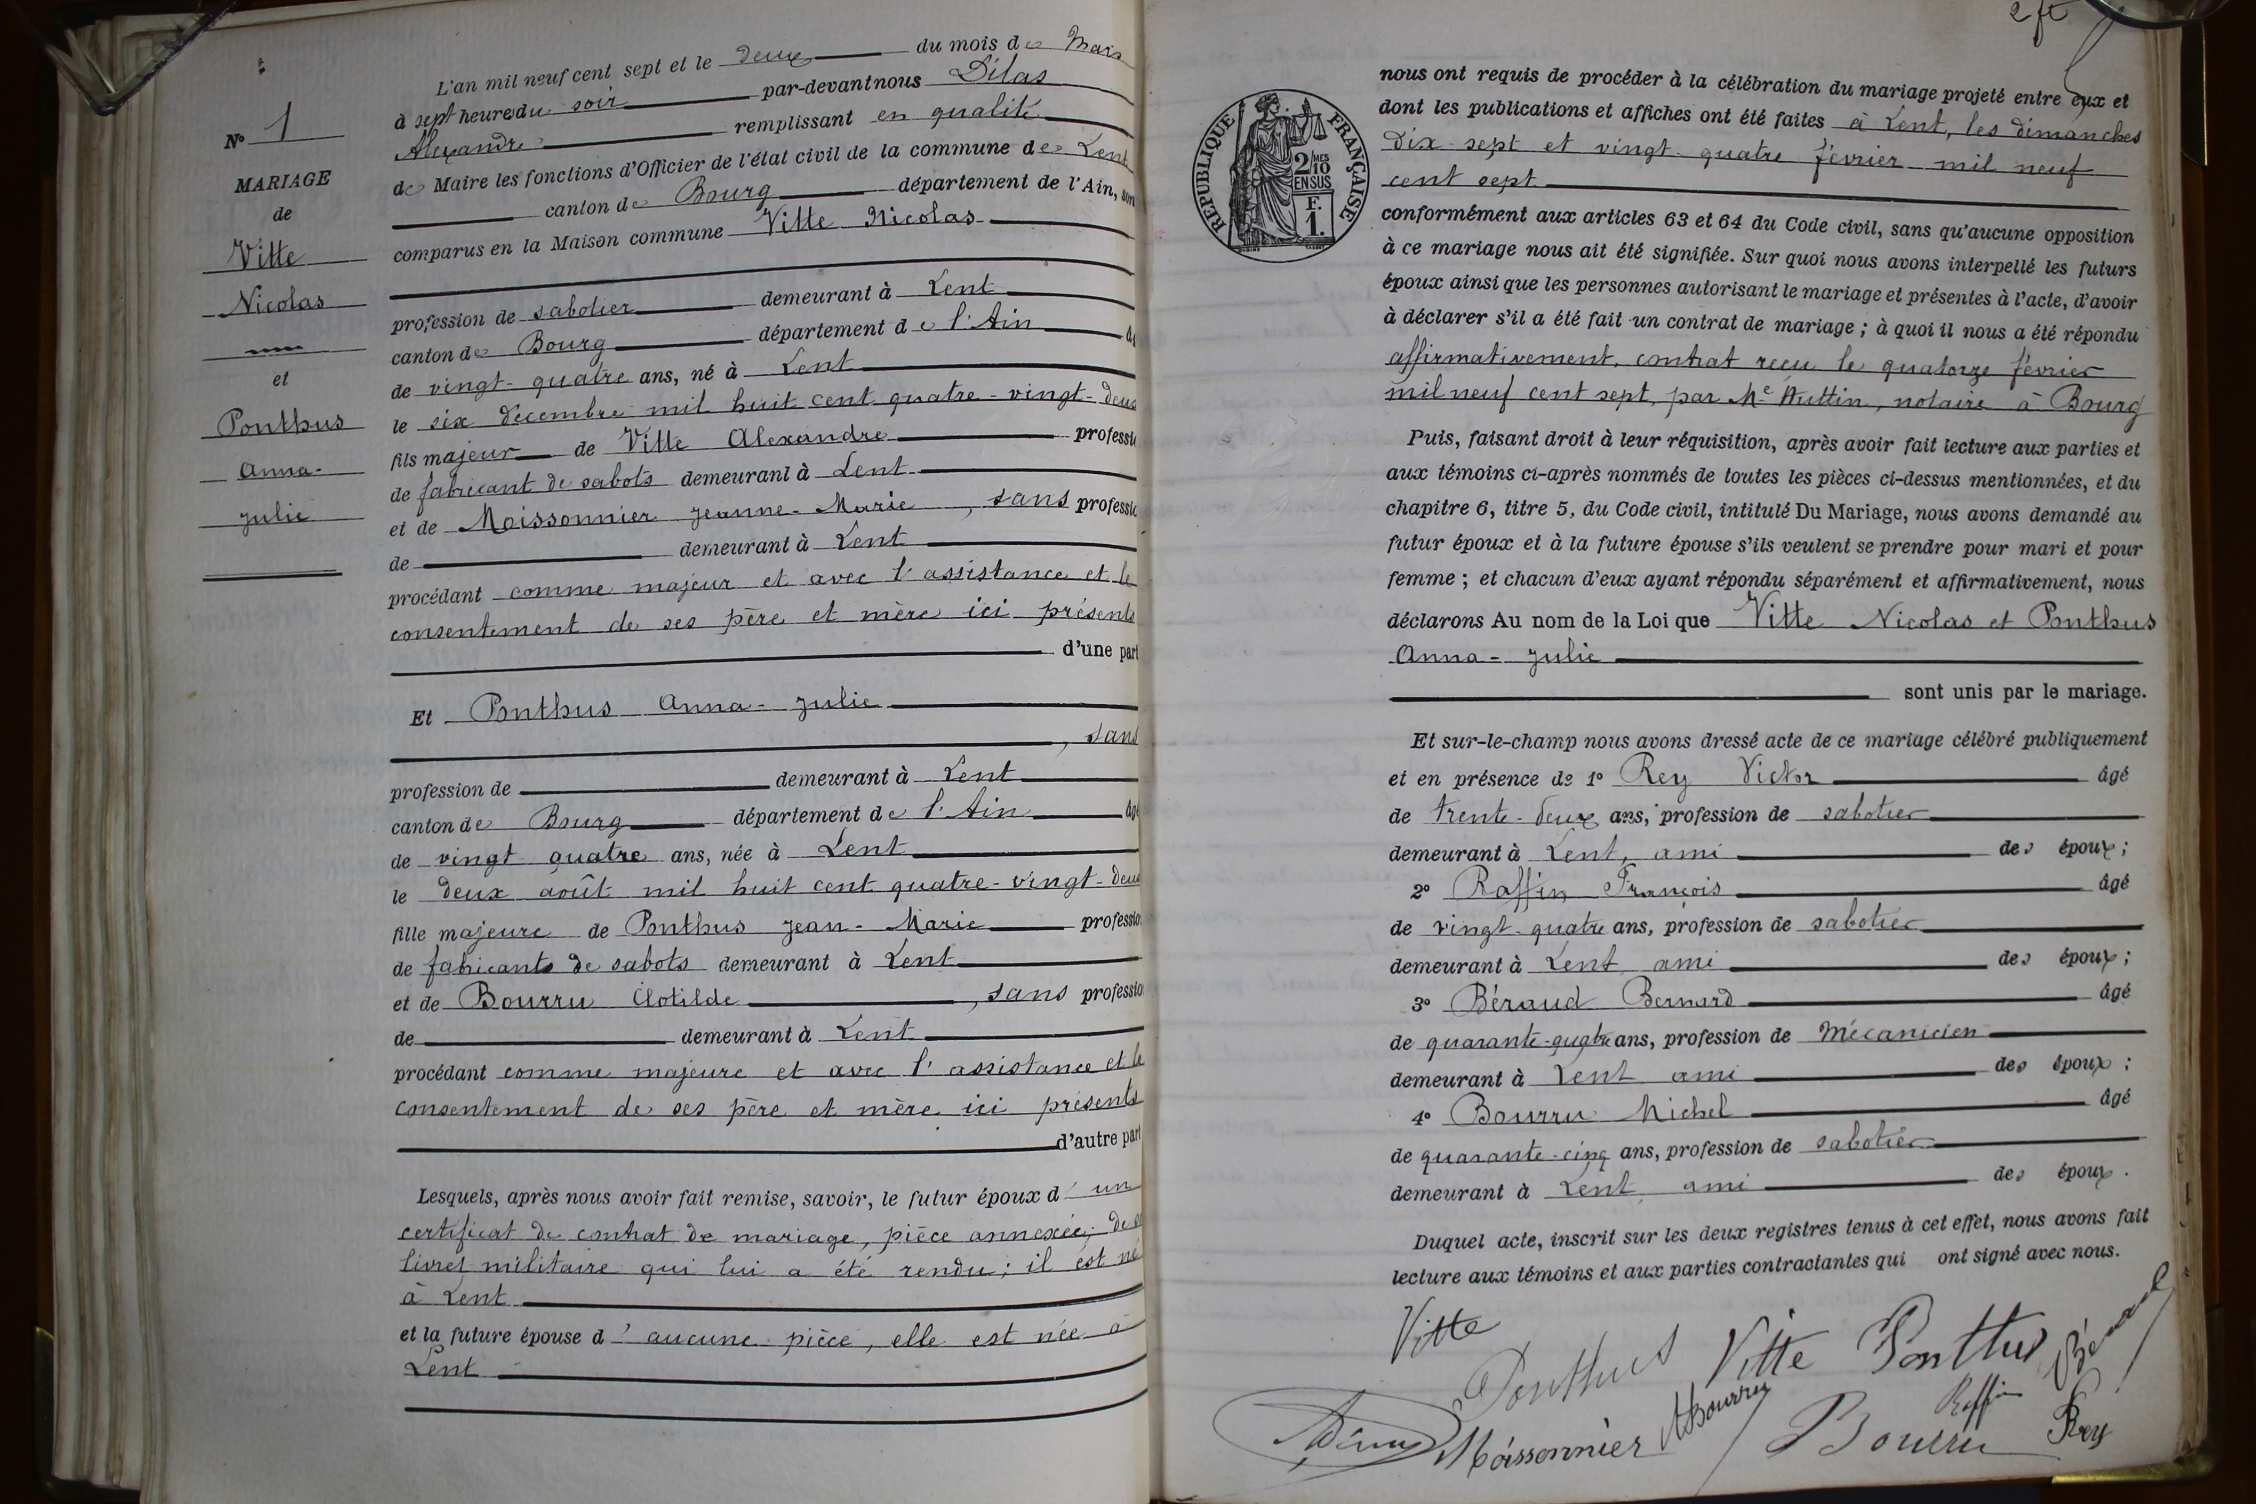 L'an mil neuf cent sept et le deux du mois de Mars
à sept heures du soir par-devant nous Dilas
Alexandre remplissant en qualité
de Maire les fonctions d'Officier de l'état civil de la commune de Lent
canton de Bourg département de l'Ain, son
comparus en la Maison commune Vitte Nicolas
profession de sabotier demeurant à Lent
canton de Bourg département de l'Ain
de vingt-quatre ans, né à Lent
le six décembre mil huit cent quatre-vingt-deux
fils majeur de Vitte Alexandre professi
de fabricant de sabots demeurant à Lent
et de Moissonnier Jeanne-Marie, sans professio
de demeurant à Lent
procédant comme majeur et avec l'assistance et le
consentement de ses père et mère ici présents
d'une part
Et Ponthus Anna-Julie
, sans
profession de demeurant à Lent
canton de Bourg département de l'Ain âgé
de vingt quatre ans, née à Lent
le deux août mil huit cent quatre-vingt-deux
fille majeure de Ponthus Jean-Marie professio
de fabricants de sabots demeurant à Lent
et de Bourru Clotilde, sans professio
de demeurant à Lent
procédant comme majeure et avec l'assistance et le
consentement de ses père et mère ici présents
d'autre part
Lesquels, après nous avoir fait remise, savoir, le futur époux d'un
certificat de contrat de mariage, pièce annexée; de
livret militaire qui lui a été rendu; il est né
à Lent
et la future épouse d'aucune pièce, elle est née à
Lent
N° 1
MARIAGE
de
Vitte
Nicolas
et
Ponthus
Anna-
Julie
2 ft
RÉPUBLIQUE FRANÇAISE
2/10 MES
EN SUS
F.
1.
nous ont requis de procéder à la célébration du mariage projeté entre eux et
dont les publications et affiches ont été faites à Lent, les dimanches
dix-sept et vingt-quatre février mil neuf
cent sept
conformément aux articles 63 et 64 du Code civil, sans qu'aucune opposition
à ce mariage nous ait été signifiée. Sur quoi nous avons interpellé les futurs
époux ainsi que les personnes autorisant le mariage et présentes à l'acte, d'avoir
à déclarer s'il a été fait un contrat de mariage ; à quoi il nous a été répondu
affirmativement, contrat reçu le quatorze février
mil neuf cent sept, par Me Huttin, notaire à Bourg
Puis, faisant droit à leur réquisition, après avoir fait lecture aux parties et
aux témoins ci-après nommés de toutes les pièces ci-dessus mentionnées, et du
chapitre 6, titre 5, du Code civil, intitulé Du Mariage, nous avons demandé au
futur époux et à la future épouse s'ils veulent se prendre pour mari et pour
femme ; et chacun d'eux ayant répondu séparément et affirmativement, nous
déclarons Au nom de la Loi que Vitte Nicolas et Ponthus
Anna-Julie
sont unis par le mariage.
Et sur-le-champ nous avons dressé acte de ce mariage célébré publiquement
et en présence de 1° Rey Victor âgé
de trente-deux ans, profession de sabotier
demeurant à Lent, ami des époux ;
2° Raffin François âgé
de vingt-quatre ans, profession de sabotier
demeurant à Lent ami des époux ;
3° Béraud Bernard âgé
de quarante-quatre ans, profession de Mécanicien
demeurant à Lent ami des époux ;
4° Bourru Michel âgé
de quarante-cinq ans, profession de sabotier
demeurant à Lent ami des époux.
Duquel acte, inscrit sur les deux registres tenus à cet effet, nous avons fait
lecture aux témoins et aux parties contractantes qui ont signé avec nous.
Vitte
Ponthus Vitte Ponthus Béraud
Moissonnier Bourru Bourru Raffin Rey